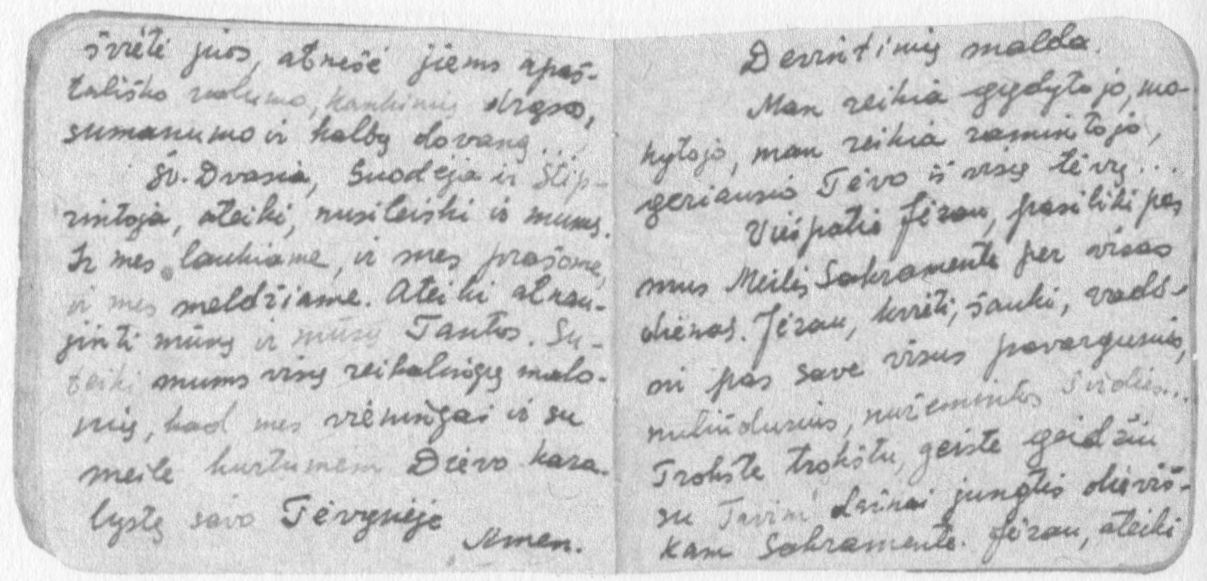 švietė juos, atnešė jiems apaš-
tališko uolumo, kankinių drąso,
sumanumo ir kalbų dovaną...
Šv. Dvasia, Guodėja ir Stip-
rintoja, ateiki, nusileiski ir mums.
Ir mes laukiame, ir mes prašome,
ir mes meldžiame. Ateiki atnau-
jinti mūsų ir mūsų Tautos. Su-
teiki mums visų reikalingų malo-
nių, kad mes vieningai ir su
meile kurtumėm Dievo kara-
lystę savo Tėvynėje
Amen.
Devintinių malda.
Man reikia gydytojo, mo-
kytojo, man reikia ramintojo,
geriausio Tėvo iš visų tėvų...
Viešpatie Jėzau, pasiliki pas
mus Meilės Sakramente per visas
dienas. Jėzau, kvieti, šauki, vadi-
ni pas save visus pavargusius,
nuliūdusius, nužemintos širdies...
Trokšte trokštu, geiste geidžiu
su Tavim dažnai jungtis dieviš-
kam Sakramente. Jėzau, ateiki